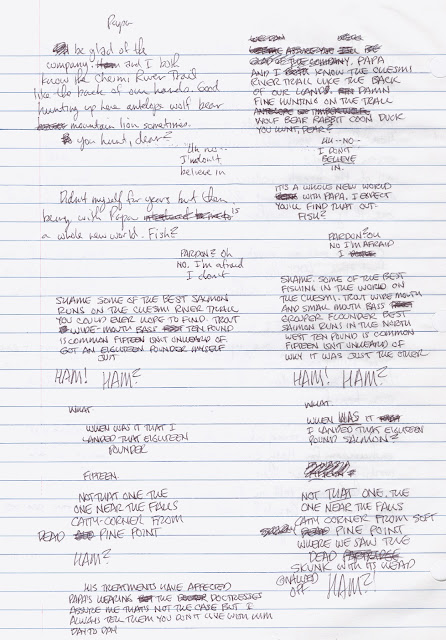 Papa
be glad of the
company. and I both
know the Chesmi River Trail
like the back of our hands. Good
hunting up here antelope wolf bear
mountain lion sometimes.
you hunt, dear?
Uh no--
I'm don't
believe in
Didn't myself for years but then
being with Papa is
a whole new world. Fish?
PARDON? Oh
NO, I'm afraid
I don't
SHAME SOME OF THE BEST SALMON
RUNS ON THE CHESMI RIVER TRAIL
YOU COULD EVER HOPE TO FIND. TROUT
WIDE-MOUTH BASS TEN POUND
IS COMMON FIFTEEN ISN'T UNHEARD OF
GOT AN EIGHTEEN POUNDER MYSELF
JUST
HAM! HAM?
WHAT
WHEN WAS IT THAT I
LANDED THAT EIGHTEEN
POUNDER
FIFTEEN.
NOT THAT ONE THE
ONE NEAR THE FALLS
CATY-CORNER FROM
DEAD PINE POINT
HAM?
HIS TREATMENTS HAVE AFFECTED
PAPA'S HEARING THE DOCTRESSES
ASSURE ME THAT'S NOT THE CASE BUT I
ALWAYS TELL THEM YOU DON'T LIVE WITH HIM
DAY TO DAY
BE
GLAD OF THE COMPANY, PAPA
AND I KNOW THE CHESMI
RIVER TRAIL LIKE THE BACK
OF OUR HANDS. DAMN
FINE HUNTING ON THE TRAIL
WOLF BEAR RABBIT COON DUCK
YOU HUNT, DEAR?
UH--NO--
I DON'T
BELIEVE
IN.
IT'S A WHOLE NEW WORLD
WITH PAPA, I EXPECT
YOU'LL FIND THAT OUT.
FISH?
PARDON? OH
NO I'M AFRAID
I
SHAME. SOME OF THE BEST
FISHING IN THE WORLD ON
THE CHESMI. TROUT WIDE MOUTH
AND SMALL MOUTH BASS
GROUPER FLOUNDER BEST
SALMON RUNS IN THE NORTH
WEST TEN POUND IS COMMON
FIFTEEN ISN'T UNHEARD OF
WHY IT WAS JUST THE OTHER
HAM! HAM?
WHAT.
WHEN WAS IT
I LANDED THAT EIGHTEEN
POUND SALMON?
NOT THAT ONE. THE
ONE NEAR THE FALLS
CATY CORNER FROM SOFT
PINE POINT
WHERE WE SAW THE
DEAD
SKUNK WITH ITS HEAD
GNAWED
OFF. HAM?